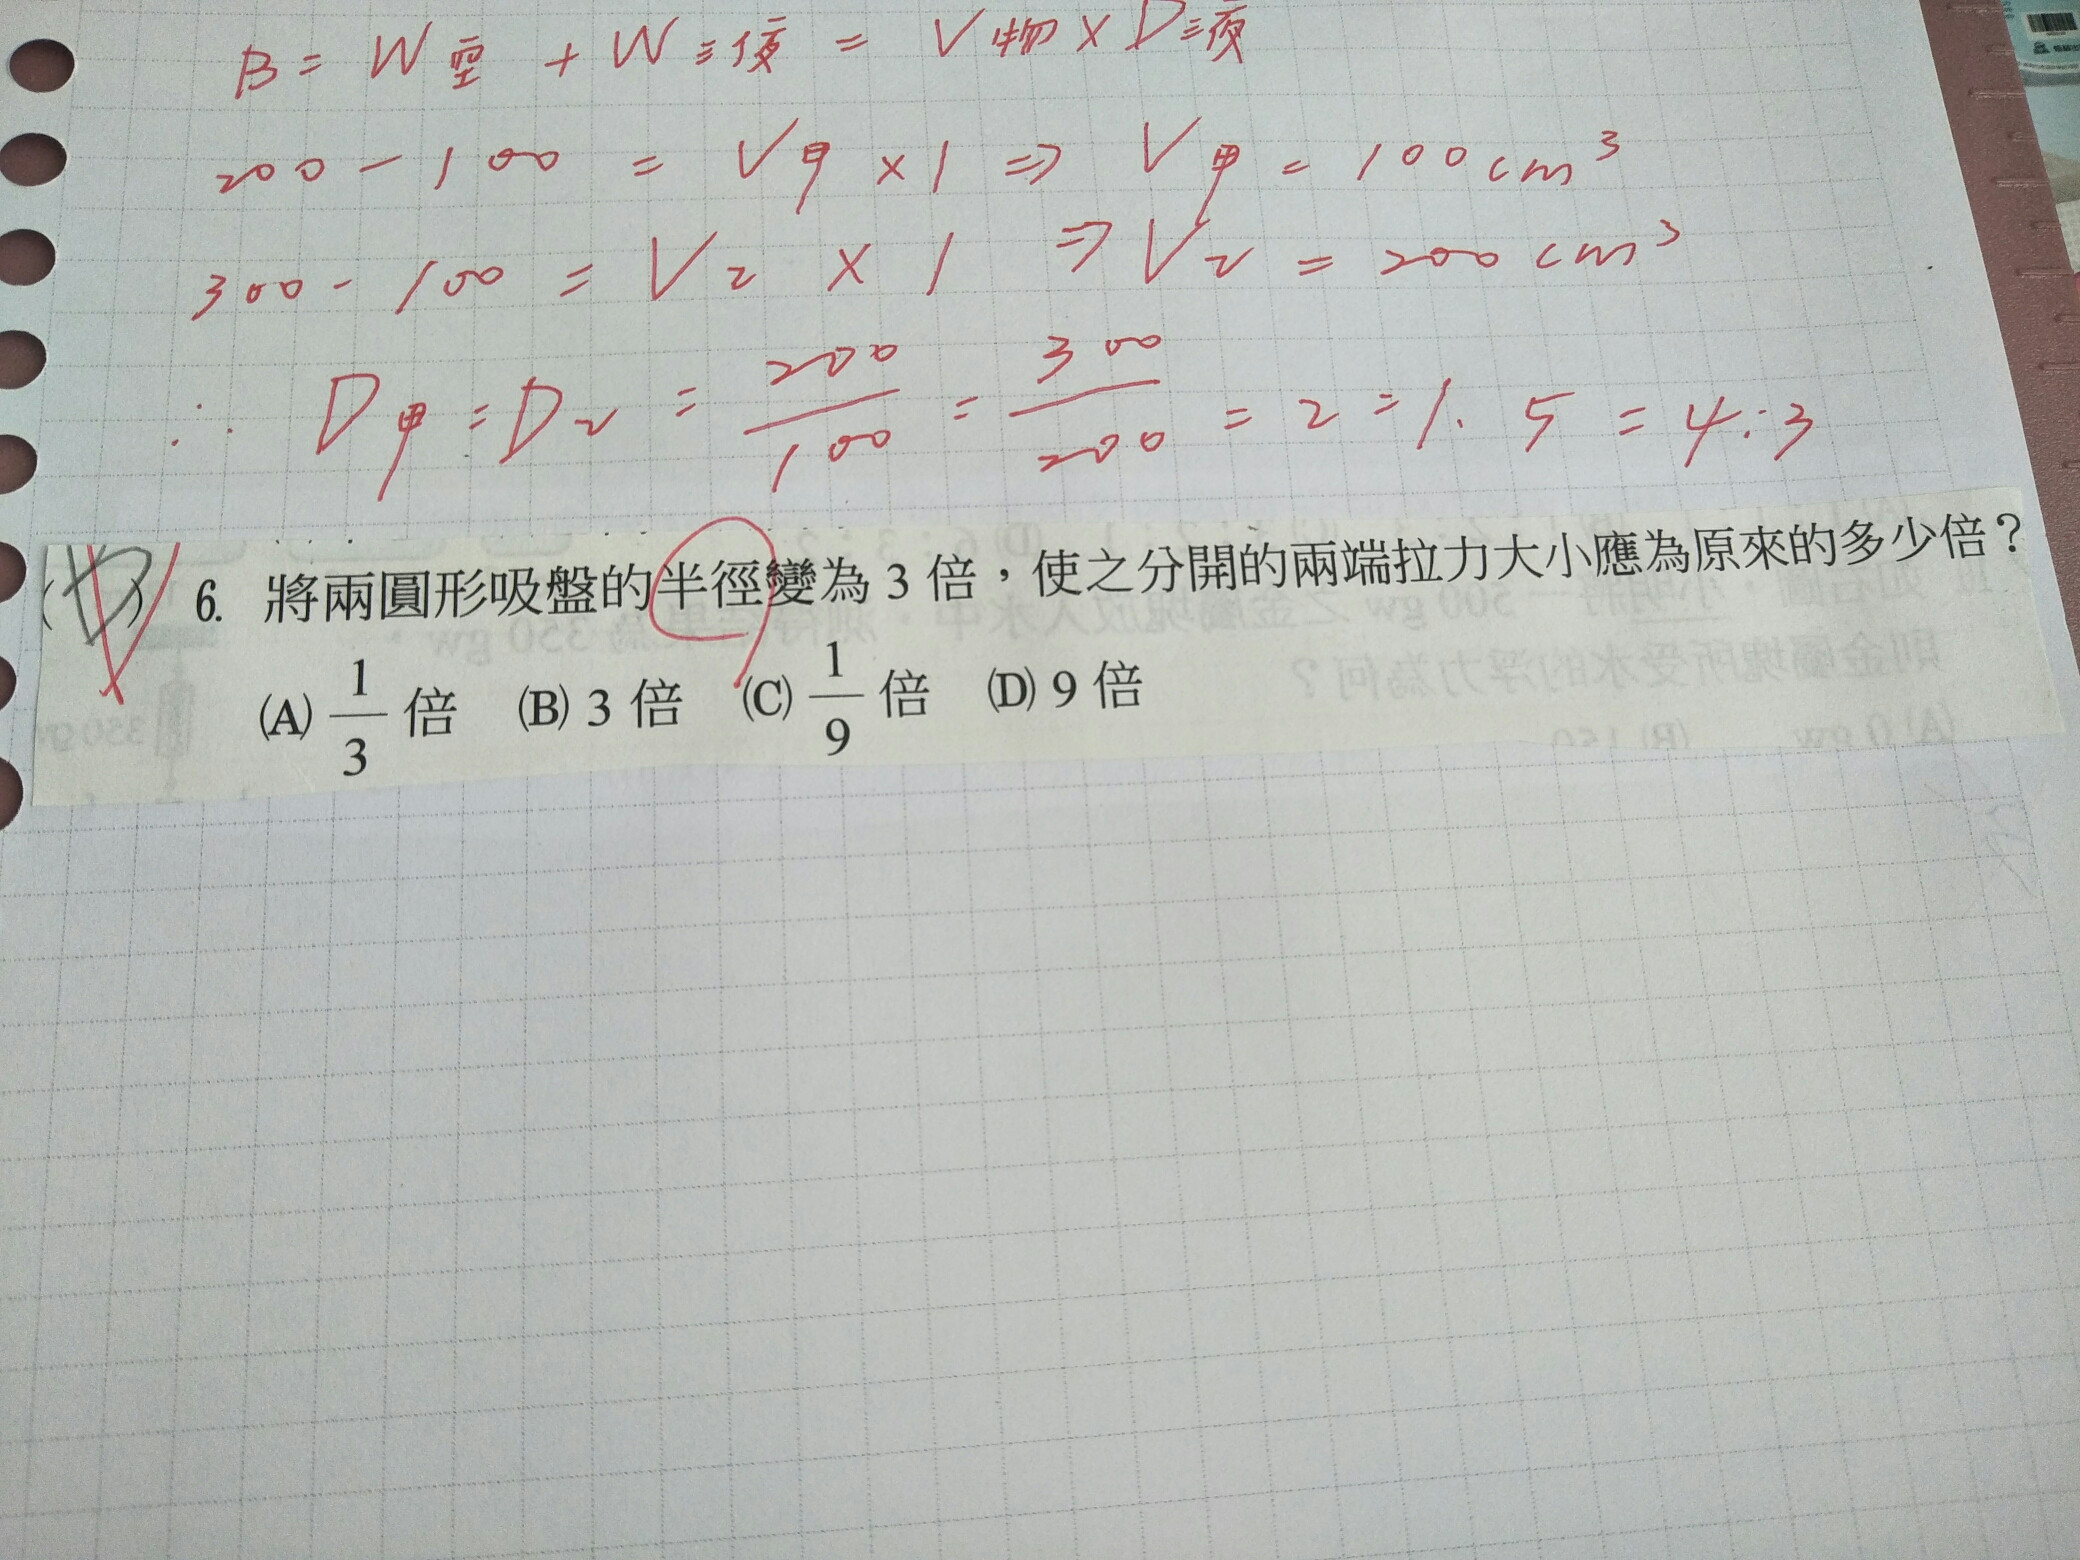 B = W空 + W液 = V物 × D液
200 - 100 = V甲 × 1 ⇒ V甲 = 100 cm³
300 - 100 = V乙 × 1 ⇒ V乙 = 200 cm³
∴ D甲 = D乙 = 200/100 = 300/200 = 2 = 1.5 = 4:3
( ) 6. 將兩圓形吸盤的半徑變為 3 倍，使之分開的兩端拉力大小應為原來的多少倍？
(A) 1/3 倍 (B) 3 倍 (C) 1/9 倍 (D) 9 倍